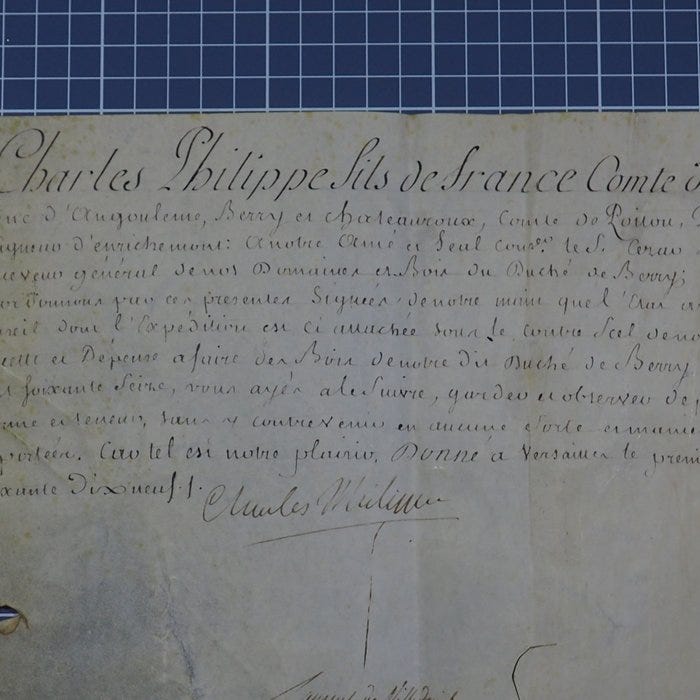 Charles Philippe fils de france Comte d
d'Angouleme, Berry et chateauroux, Comte de Poitou,
d'enrichemont: A notre Amé et feal Con.er le S.r Cerau
général de nos Domaines et Bois du Duché de Berry;
ordonnons par ces presentes Signées de notre main que l'Etat
dont l'Expédition est ci attachée sous le contre Scel de
et Dépense a faire des Bois de notre dit Duché de Berry
soixante Seize, vous ayés a le Suivre, garder et observer de
et teneur, sans y contrevenir en aucune sorte et maniere
Car tel est notre plaisir. Donné a Versailles le premi
Dix neuf./.
Charles Philippe